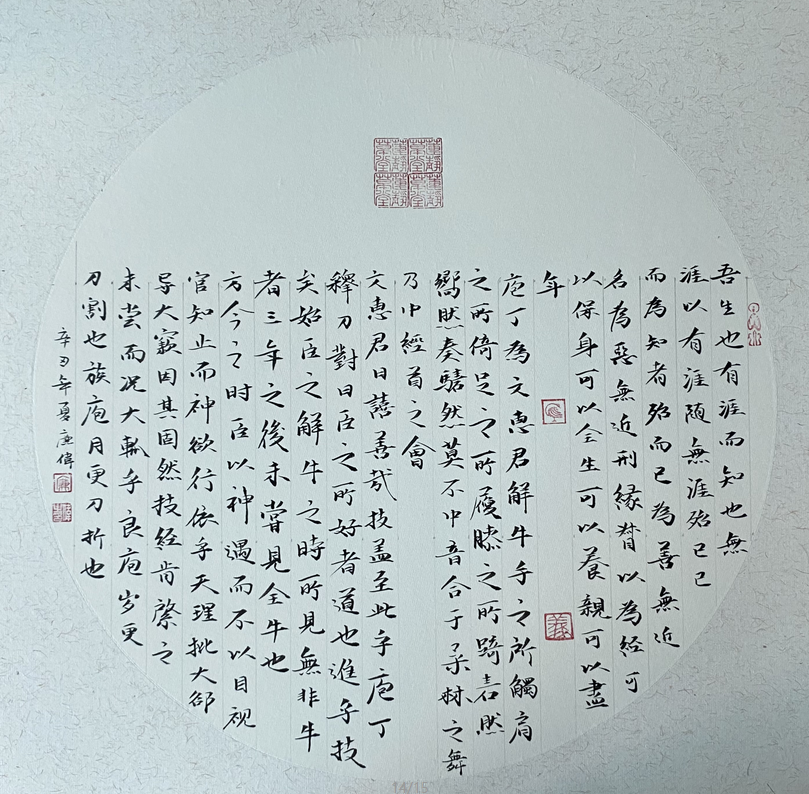 吾生也有涯而知也無
涯以有涯隨無涯殆已已
而為知者殆而已為善無近
名為惡無近刑緣督以為經可
以保身可以全生可以養親可以盡
年
庖丁為文惠君解牛手之所觸肩
之所倚足之所履膝之所踦砉然
嚮然奏騞然莫不中音合于桑林之舞
乃中經首之會
文惠君曰譆善哉技盖至此乎庖丁
釋刀對曰臣之所好者道也進乎技
矣始臣之解牛之時所見無非牛
者三年之後未嘗見全牛也
方今之时臣以神遇而不以目视
官知止而神欲行依乎天理批大郤
导大窾因其固然技经肯綮之
未尝而况大軱乎良庖岁更
刀割也族庖月更刀折也
辛丑年夏 偉
義
14/15